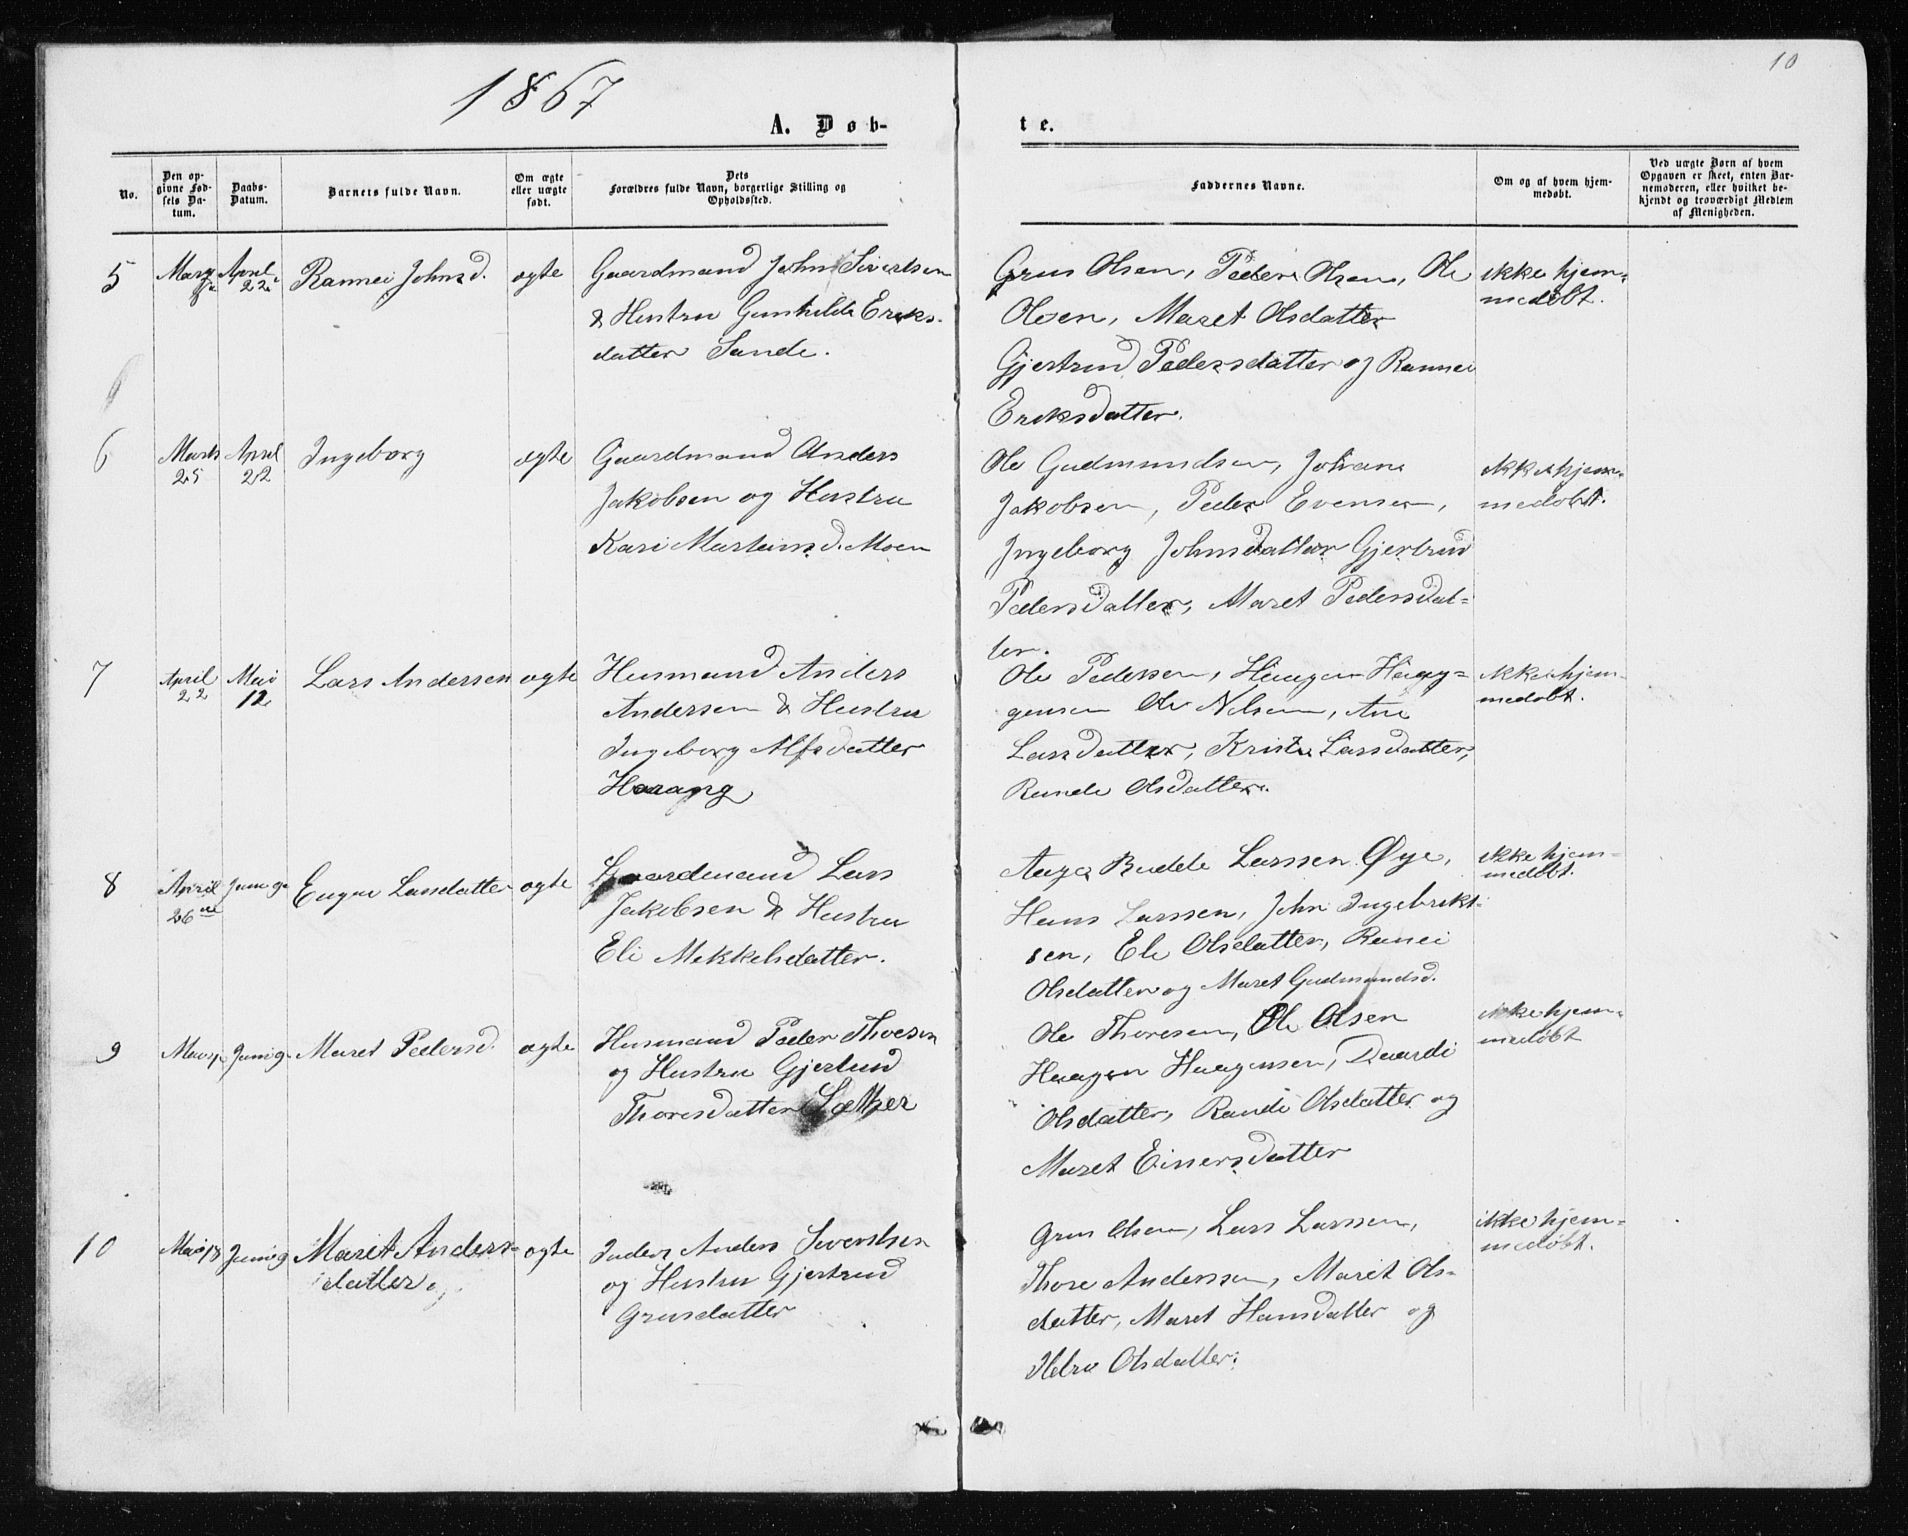 1867
10
A. Døb-
te.
No.
Den opgivne Fødsels Datum.
Daabs-Datum.
Barnets fulde Navn.
Om ægte eller uægte født.
Dets Forældres fulde Navn, borgerlige Stilling og Opholdssted.
Faddernes Navne.
Om og af hvem hjemmedøbt.
Ved uægte Børn af hvem Opgaven er skeet, enten Barnemoderen, eller hvilket bekjendt og troværdigt Medlem af Menigheden.
5
April 22
Rannei Johnsd.
ægte
Gaardmand John Sivertsen
& Hustru Gunhilde Eriks-
datter Sande.
Grus Olsen, Peder Olsen, Ole
Olsen, Maret Olsdatter
Gjertrud Pedersdatter og Rannei
Eriksdatter.
ikke hjem-
medøbt.
6
Marts 25
April 22
Ingeborg
ægte
Gaardmand Anders
Jakobsen og Hustru
Kari Martinsd. Moen
Ole Gudmundsen, Johan
Jakobsen, Peder Evensen,
Ingeborg Johnsdatter Gjertrud
Pedersdatter, Maret Pedersdat-
ter.
ikke hjem-
medøbt.
7
April 22
Mai 12
Lars Andersen
ægte
Husmand Anders
Andersen & Hustru
Ingeborg Alfsdatter
Haarang
Ole Pedersen, Haagen Haag-
gensen Ole Nilsen, Ane
Larsdatter, Kristi Larsdatter,
Rande Olsdatter.
ikke hjem-
medøbt.
8
April 26
Juni 9
Larsdatter
ægte
Gaardmand Lars
Jakobsen & Hustru
Eli Mekkelsdatter.
Aage Budde Larssen Øye,
Hans Larssen, John Ingebrikt-
sen, Eli Olsdatter, Ranei
Olsdatter og Maret Gudmundsd.
ikke hjem-
medøbt.
9
Juni 9
Maret Pedersd.
ægte
Husmand Peder Thoresen
og Hustru Gjertrud
Thoresdatter Sæther
Ole Thoresen, Ole Olsen
Haagen Haagensen, Daardi
Olsdatter, Randi Olsdatter og
Maret Einersdatter
ikke hjem-
medøbt
10
Mai 18
Juni 9
Maret Anders-
datter
ægte
Inders Anders Sivertsen
og Hustru Gjertrud
Grusdatter
Grus Olsen, Lars Larssen,
Thore Anderssen, Maret Ols-
datter, Maret Hansdatter og
Olsdatter.
ikke hjem-
medøbt.